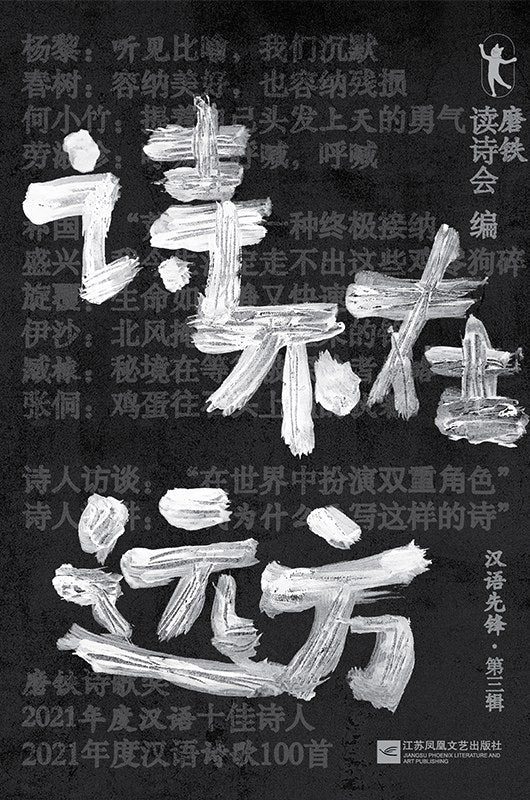 杨黎：听见比喻，我们沉默
春树：容纳美好，也容纳残损
何小竹：己头发上天的勇气
呼喊，呼喊
韩国 种终极接纳
盛兴 走不出这些 狗碎
旋覆 生命如 又快
伊沙：北风 来的
臧棣：秘境在等 者
张侗：鸡蛋往 头上
诗人访谈：“在世界中扮演双重角色”
诗人 为什么 写这样的诗”
诗不在
远方
磨铁
读诗会 编
汉语先锋·第三辑
磨铁诗歌奖
2021年度汉语十佳诗人
2021年度汉语诗歌100首
江苏凤凰文艺出版社
JIANGSU PHOENIX LITERATURE AND
ART PUBLISHING